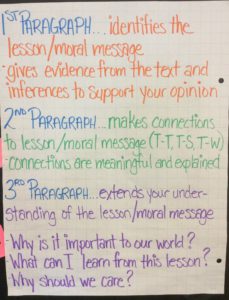 1ST PARAGRAPH... identifies the
lesson/moral message
· gives evidence from the text and
inferences to support your opinion
2ND PARAGRAPH... makes connections
to lesson/moral message (T-T, T-S, T-W)
· connections are meaningful and explained
3RD PARAGRAPH... extends your under-
standing of the lesson/moral message
· Why is it important to our world?
· What can I learn from this lesson?
· Why should we care?